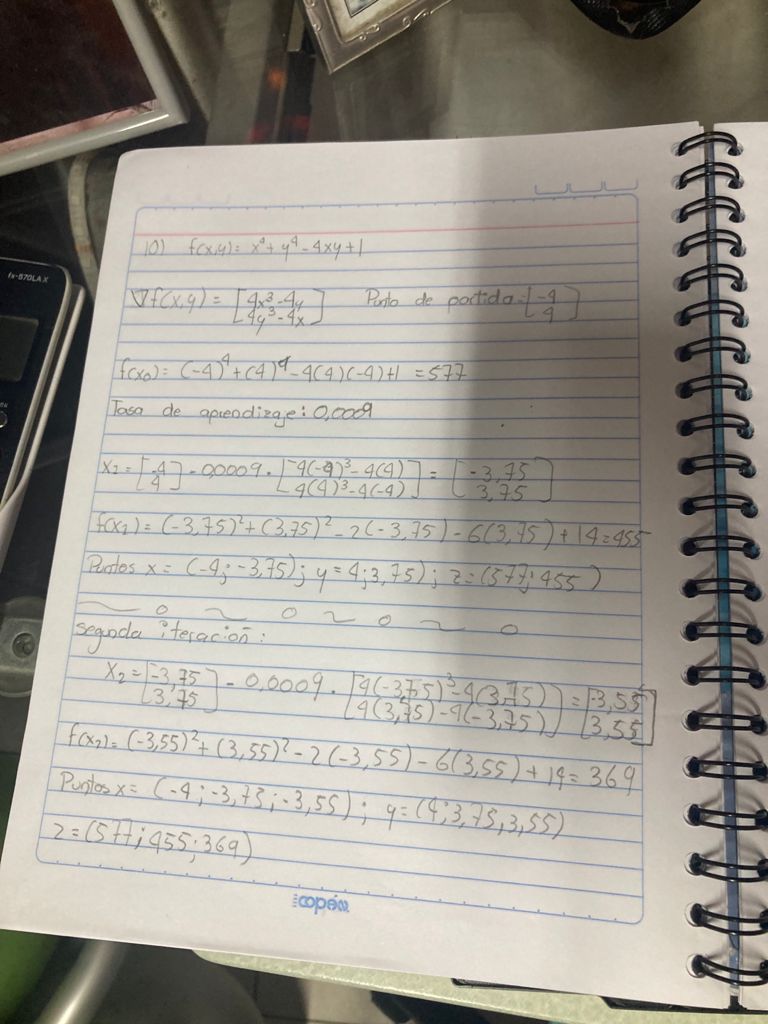 fx-570LAX
10) f(x,y)= x⁴ + y⁴ - 4xy + 1
∇f(x,y) = [4x³-4y
4y³-4x] Punto de partida=[-4
4]
f(x₀)= (-4)⁴+(4)⁴-4(4)(-4)+1 =577
Tasa de aprendizaje: 0,0009
x₁= [-4
4] - 0,0009 · [4(-4)³-4(4)
4(4)³-4(-4)] = [-3,75
3,75]
f(x₁)= (-3,75)²+(3,75)²-2(-3,75)-6(3,75)+14=455
Puntos x= (-4;-3,75); y=4;3,75); z=(577;455)
segunda iteración:
x₂= [-3,75
3,75] - 0,0009 · [4(-3,75)³-4(3,75)
4(3,75)-4(-3,75)] = [-3,55
3,55]
f(x₂)= (-3,55)²+(3,55)²-2(-3,55)-6(3,55)+14= 369
Puntos x= (-4;-3,75;-3,55); y=(4;3,75;3,55)
z=(577;455;369)